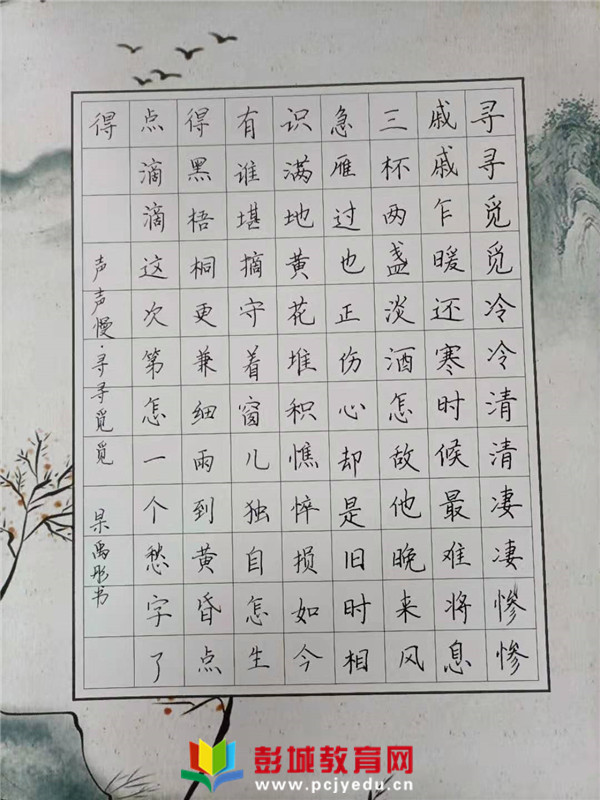 寻寻觅觅冷冷清清凄凄惨惨
戚戚乍暖还寒时候最难将息
三杯两盏淡酒怎敌他晚来风
急雁过也正伤心却是旧时相
识满地黄花堆积憔悴损如今
有谁堪摘守着窗儿独自怎生
得黑梧桐更兼细雨到黄昏点
点滴滴这次第怎一个愁字了
得
声声慢·寻寻觅觅 杲禹彤书
彭城教育网
www.pcjyedu.cn